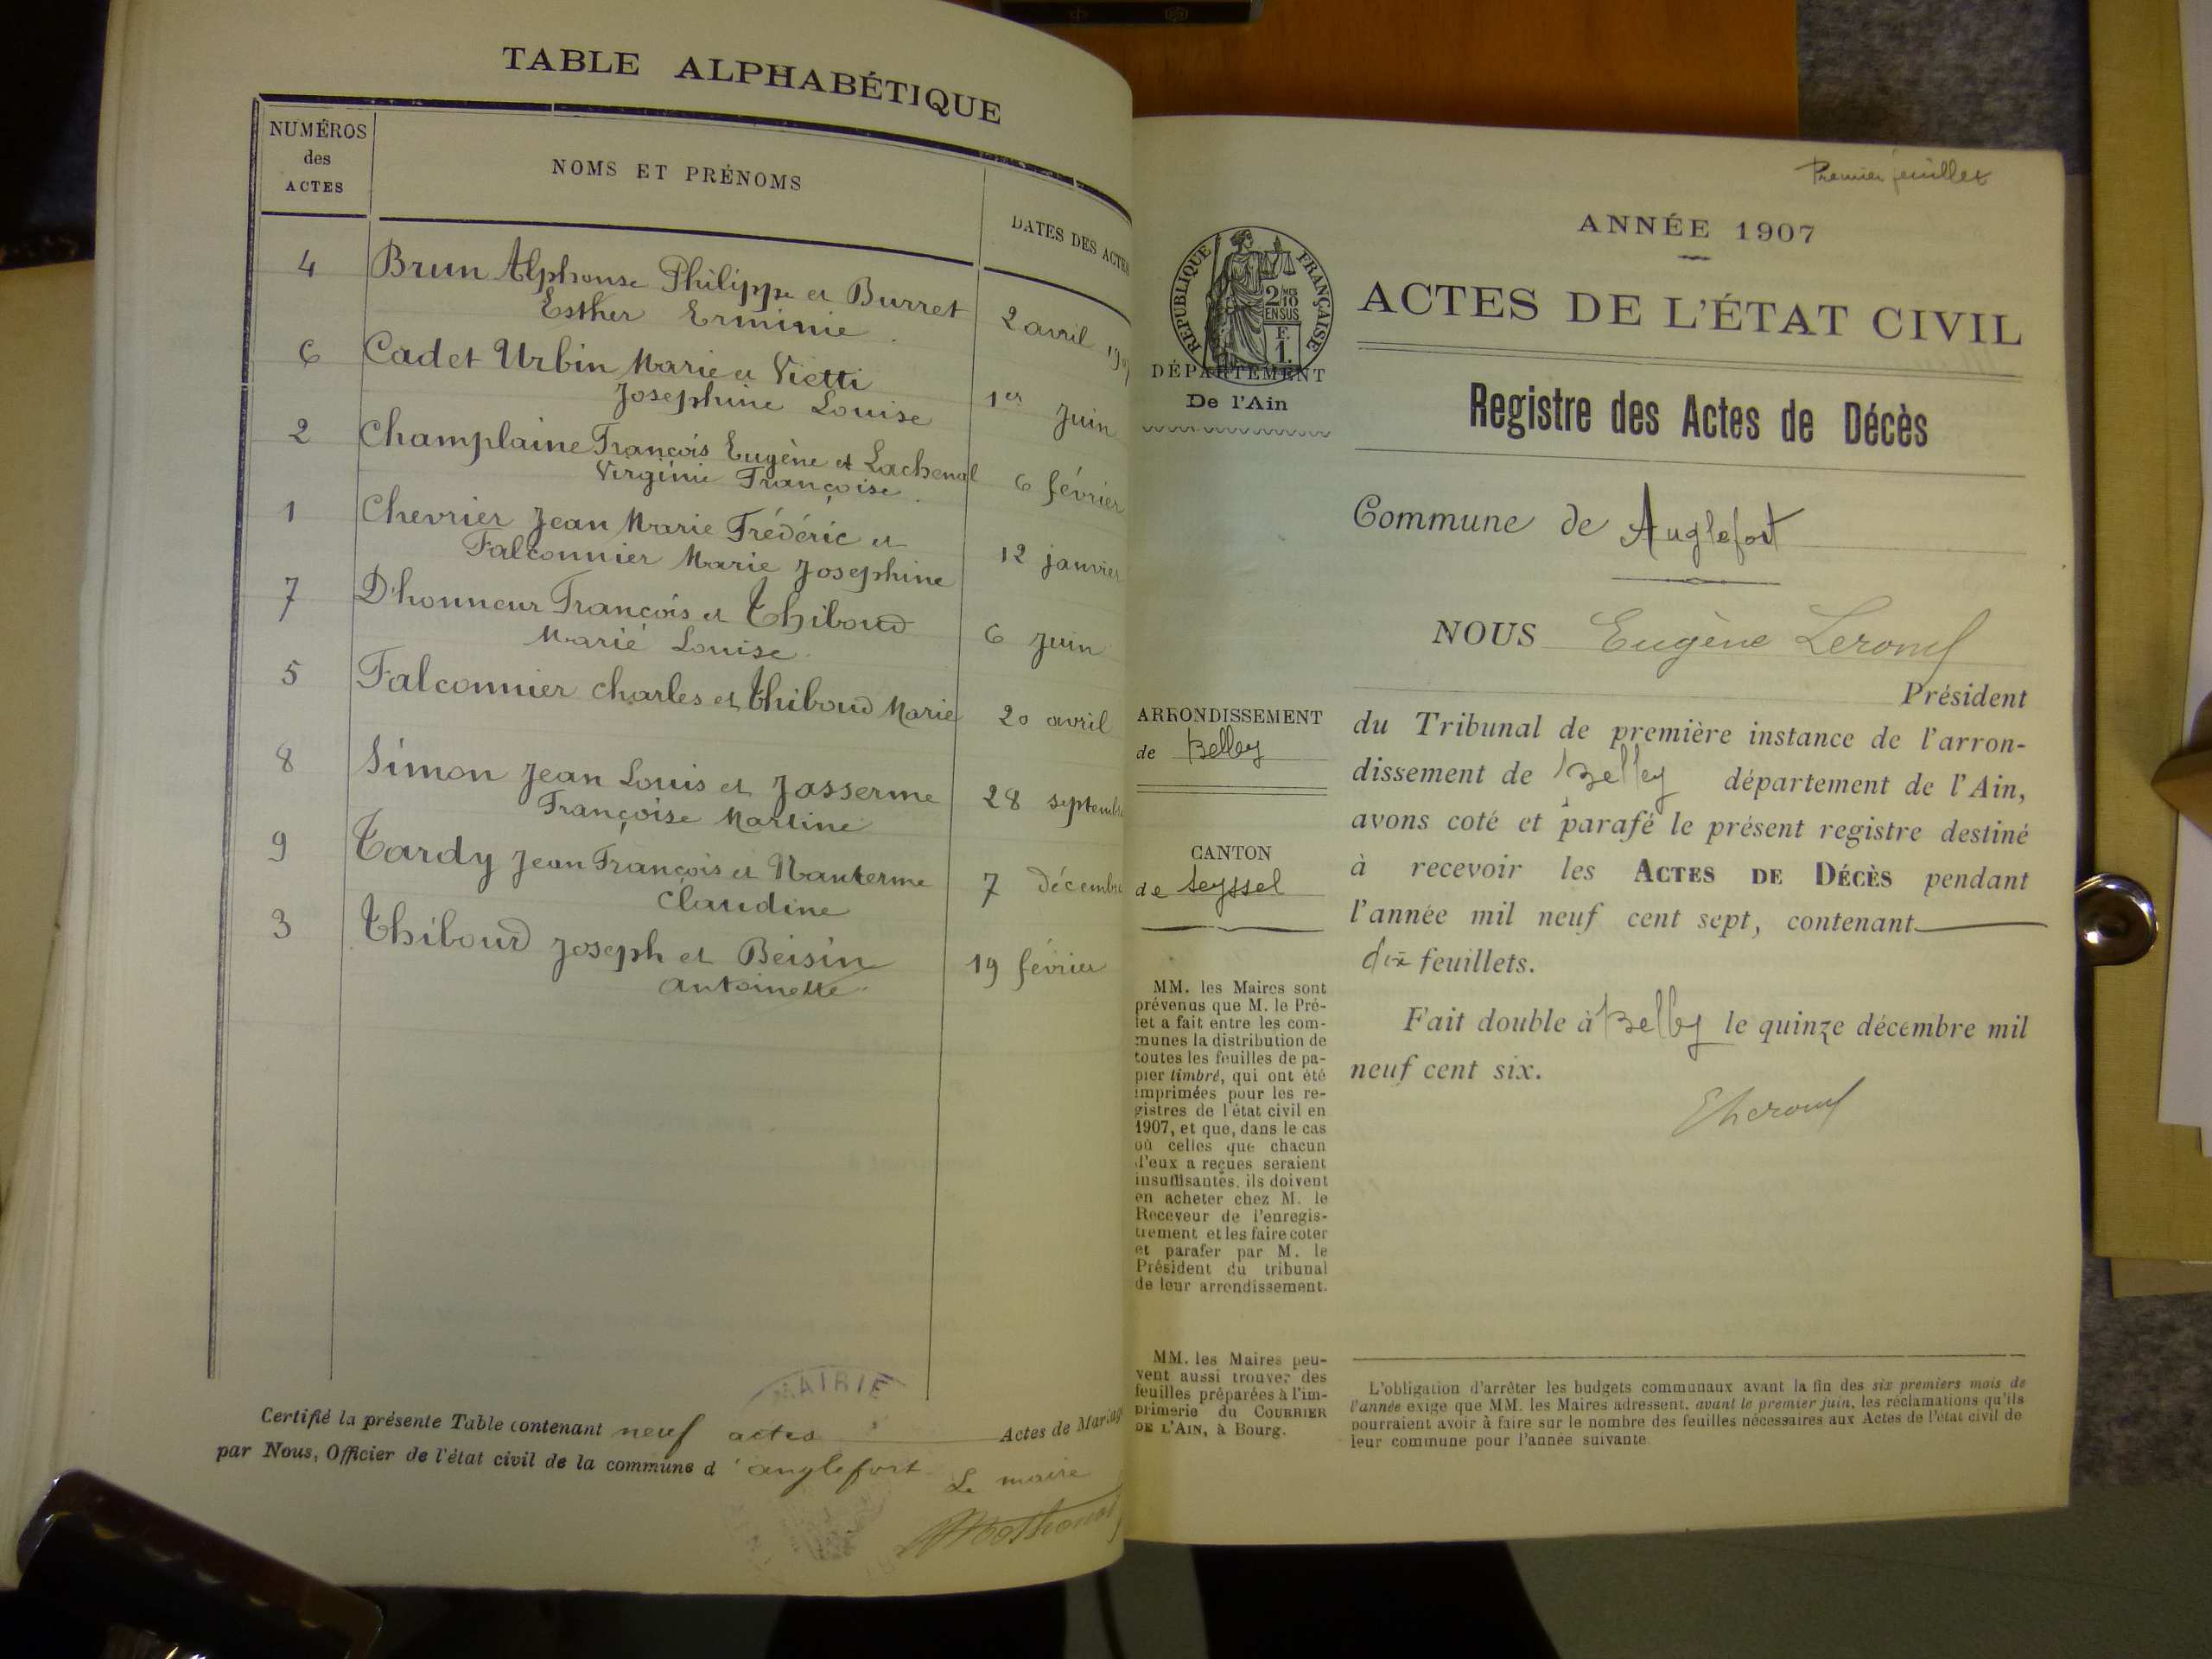 TABLE ALPHABÉTIQUE
NUMÉROS
des
ACTES
NOMS ET PRÉNOMS
DATES DES ACTES
4 Brun Alphonse Philippe et Burret 2 avril 1907
Esther Erminie
6 Cadet Urbin Marie et Vietti 1er juin
Josephine Louise
2 Champlaine François Eugène et Lachenal 6 février
Virginie Françoise
1 Chevrier Jean Marie Frédéric et 12 janvier
Falconnier Marie Josephine
7 D'honneur François et Thiboud 6 juin
Marie Louise
5 Falconnier Charles et Thiboud Marie 20 avril
8 Simon Jean Louis et Jasserme 28 septembre
Françoise Martine
9 Tardy Jean François et Nanterme 7 décembre
Claudine
3 Thiboud Joseph et Beisin 19 février
Antoinette
MAIRIE
Certifié la présente Table contenant neuf actes Actes de Mariage
par Nous, Officier de l'état civil de la commune d'anglefort
Le maire
Premier feuillet
ANNÉE 1907
RÉPUBLIQUE FRANÇAISE
ACTES DE L'ÉTAT CIVIL
DÉPARTEMENT
De l'Ain
Registre des Actes de Décès
Commune de Anglefort
NOUS Eugène
Président
ARRONDISSEMENT
de Belley
du Tribunal de première instance de l'arron-
dissement de Belley département de l'Ain,
avons coté et parafé le présent registre destiné
CANTON
de Seyssel
à recevoir les ACTES DE DÉCÈS pendant
l'année mil neuf cent sept, contenant
dix feuillets.
Fait double à Belley le quinze décembre mil
neuf cent six.
MM. les Maires sont
prévenus que M. le Pré-
fet a fait entre les com-
munes la distribution de
toutes les feuilles de pa-
pier timbré, qui ont été
imprimées pour les re-
gistres de l'état civil en
1907, et que, dans le cas
où celles que chacun
d'eux a reçues seraient
insuffisantes, ils doivent
en acheter chez M. le
Receveur de l'enregis-
trement et les faire coter
et parafer par M. le
Président du tribunal
de leur arrondissement.
MM. les Maires peu-
vent aussi trouver des
feuilles préparées à l'im-
primerie du COURRIER
DE L'AIN, à Bourg.
L'obligation d'arrêter les budgets communaux avant la fin des six premiers mois de
l'année exige que MM. les Maires adressent, avant le premier juin, les réclamations qu'ils
pourraient avoir à faire sur le nombre des feuilles nécessaires aux Actes de l'état civil de
leur commune pour l'année suivante